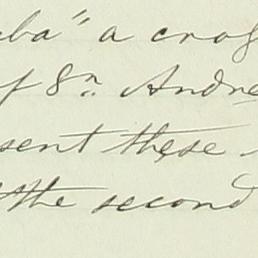 ba" a crog
of Sr. Andre
sent these
the second